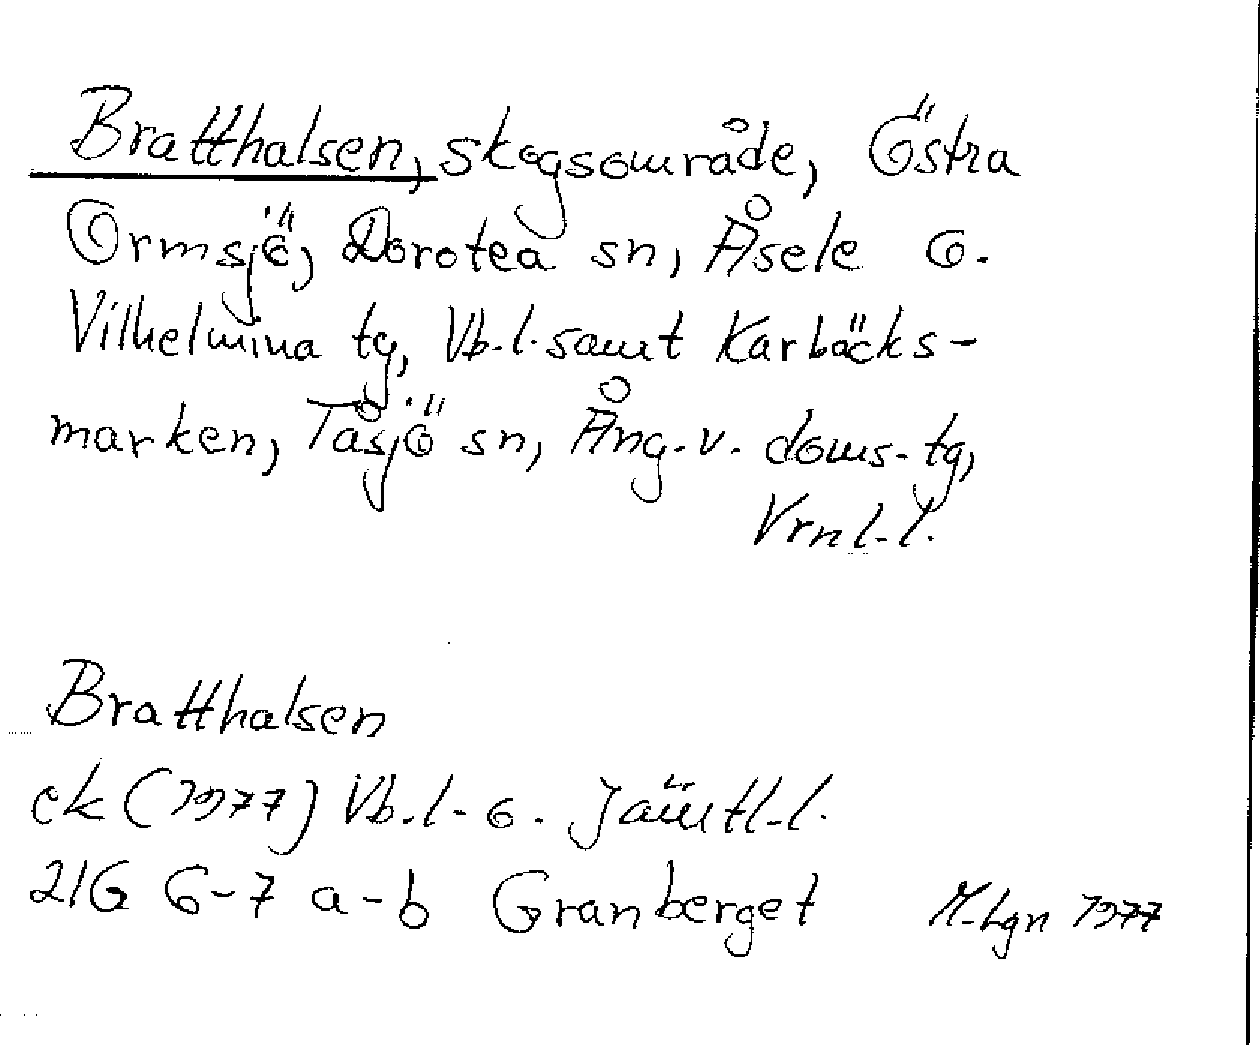 Bratthalsen, skogsområde, Östra
Ormsjö, Dorotea sn, Åsele o.
Vilhelmina tg, Vb.l. samt Karbäcks-
marken, Tåsjö sn, Ång. v. doms. tg,
Vrnl.l.
Bratthalsen
ek (1977) Vb.l. o. Jämtl.l.
21G 6-7 a-b Granberget M-Lgn 1977